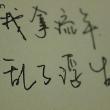 「我拿流年
乱了浮生